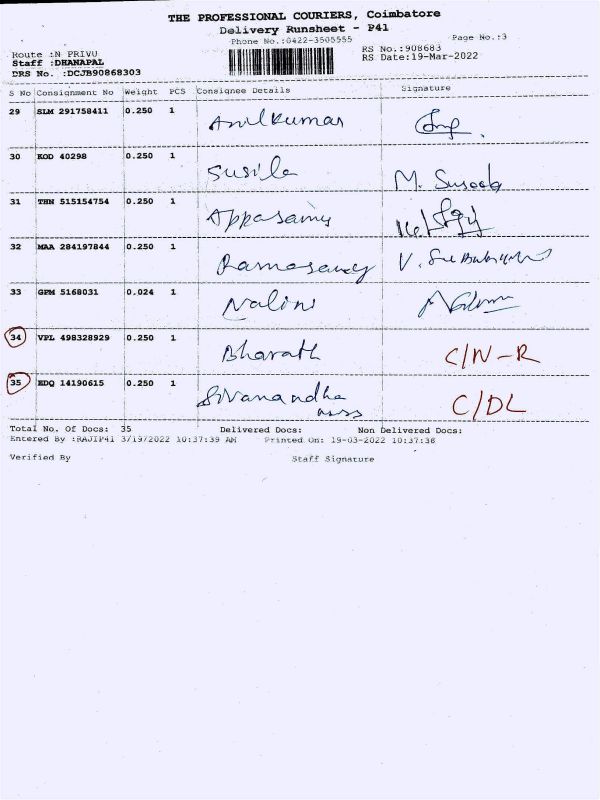 THE PROFESSIONAL COURIERS, Coimbatore
Delivery Runsheet - P41
Phone No.:0422-3505555 Page No.:3
Route :N PRIVU RS No.:908683
Staff :DHANAPAL RS Date:19-Mar-2022
DRS No. :DCJB90868303
S No Consignment No Weight PCS Consignee Details Signature
29 SLM 291758411 0.250 1 Anilkumar
30 KOD 40298 0.250 1 Susila M.
31 THN 515154754 0.250 1 Appasamy
32 MAA 284197844 0.250 1 Ramasamy V.
33 GPM 5168031 0.024 1 Nalini
34 VPL 498328929 0.250 1 Bharath C/N-R
35 EDQ 14190615 0.250 1 Sivanandha C/DL
Total No. Of Docs: 35 Delivered Docs: Non Delivered Docs:
Entered By :RAJIP41 3/19/2022 10:37:39 AM Printed On: 19-03-2022 10:37:38
Verified By Staff Signature